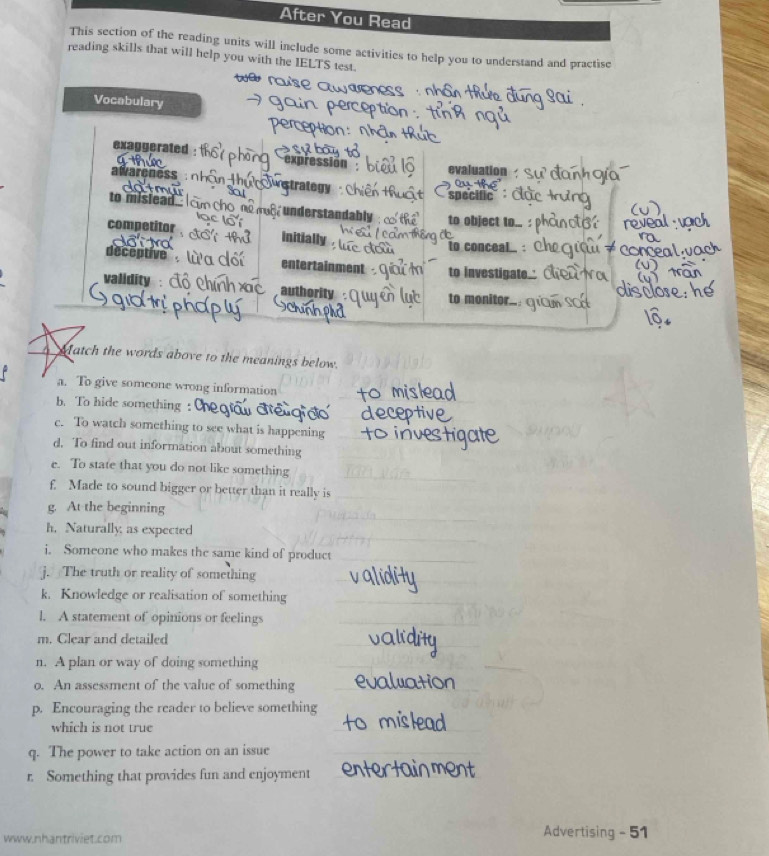 After You Read
This section of the reading units will include some activities to help you to understand and practise
reading skills that will help you with the IELTS test.
raise awareness : nhận thức đúng sai.
Vocabulary
→ gain perception : tỉnh ngủ
perception: nhận thức
exaggerated : thổi phồng
sự bày tỏ
expression : biểu lộ
evaluation : sự đánh giá
ý thức
awareness : nhận thức đúng sai
strategy : chiến thuật
cụ thể
specific : đặc trưng
dắt mũi
to mislead... : làm cho mê muội
lạc lối
understandably : có thể
hiểu / cảm thông đc
to object to... : phản đối
competitor : đối thủ
initially : lúc đầu
to conceal... : che giấu ≠
(v)
reveal : vạch
ra
conceal : vạch
(v) trần
(v)
disclose : hé
lộ.
dối trá
deceptive : lừa dối
entertainment : giải trí
to investigate... : điều tra
validity : độ chính xác
giá trị pháp lý
authority : quyền lực
chính phủ
to monitor... : giám sát
Match the words above to the meanings below.
a. To give someone wrong information to mislead
b. To hide something : che giấu điều gì đó deceptive
c. To watch something to see what is happening to investigate
d. To find out information about something
e. To state that you do not like something
f. Made to sound bigger or better than it really is
g. At the beginning
h. Naturally, as expected
i. Someone who makes the same kind of product
j. The truth or reality of something validity
k. Knowledge or realisation of something
l. A statement of opinions or feelings
m. Clear and detailed validity
n. A plan or way of doing something
o. An assessment of the value of something evaluation
p. Encouraging the reader to believe something
which is not true to mislead
q. The power to take action on an issue
r. Something that provides fun and enjoyment entertainment
www.nhantriviet.com
Advertising - 51